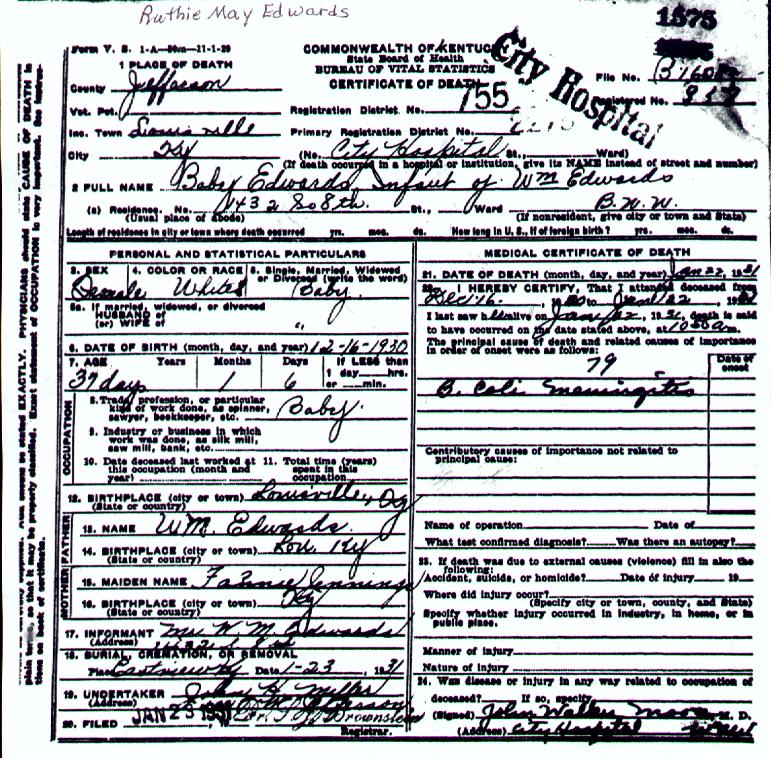 Ruthie May Edwards
1575
Form V. S. 1-A—50m—11-1-29
COMMONWEALTH OF KENTUCKY
State Board of Health
BUREAU OF VITAL STATISTICS
CERTIFICATE OF DEATH
City Hospital
1 PLACE OF DEATH
County Jefferson
File No.
Vot. Pct.
Registration District No. 755
Registered No.
Inc. Town Louisville
Primary Registration District No.
City Ky
(No. City Hospital St., Ward)
(If death occurred in a hospital or institution, give its NAME instead of street and number)
2 FULL NAME Baby Edwards, Infant of Wm Edwards
(a) Residence. No. 1432 So 8th. St., Ward
(Usual place of abode)
(If nonresident, give city or town and State)
Length of residence in city or town where death occurred yrs. mos. ds. How long in U. S., if of foreign birth? yrs. mos. ds.
PERSONAL AND STATISTICAL PARTICULARS
3. SEX Female
4. COLOR OR RACE White
5. Single, Married, Widowed or Divorced (write the word) Baby
5a. If married, widowed, or divorced
HUSBAND of
(or) WIFE of
6. DATE OF BIRTH (month, day, and year) 12-16-1930
7. AGE Years Months Days If LESS than
37 days 1 6 1 day hrs.
or min.
OCCUPATION
8. Trade, profession, or particular
kind of work done, as spinner,
sawyer, bookkeeper, etc. Baby
9. Industry or business in which
work was done, as silk mill,
saw mill, bank, etc.
10. Date deceased last worked at
this occupation (month and
year)
11. Total time (years)
spent in this
occupation
12. BIRTHPLACE (city or town) Louisville, Ky
(State or country)
FATHER
13. NAME WM. Edwards
14. BIRTHPLACE (city or town) Lou. Ky
(State or country)
MOTHER
15. MAIDEN NAME Fannie Jennings
16. BIRTHPLACE (city or town) Ky
(State or country)
17. INFORMANT Mr. W. M. Edwards
(Address)
18. BURIAL, CREMATION, OR REMOVAL
Place Date 1-23, 1931
19. UNDERTAKER John H. Miller
(Address)
20. FILED JAN 23 1931
Registrar.
MEDICAL CERTIFICATE OF DEATH
21. DATE OF DEATH (month, day, and year) Jan 22, 1931
22. I HEREBY CERTIFY, That I attended deceased from
Dec 16, 1930 to Jan 22, 19
I last saw h alive on Jan 22, 1931, death is said
to have occurred on the date stated above, at 10 50 a m.
The principal cause of death and related causes of importance
in order of onset were as follows:
Date of
onset
79
B. Coli Meningitis
Contributory causes of importance not related to
principal cause:
Name of operation Date of
What test confirmed diagnosis? Was there an autopsy?
23. If death was due to external causes (violence) fill in also the
following:
Accident, suicide, or homicide? Date of injury 19
Where did injury occur?
(Specify city or town, county, and State)
Specify whether injury occurred in industry, in home, or in
public place.
Manner of injury
Nature of injury
24. Was disease or injury in any way related to occupation of
deceased? If so, specify
(Signed) John Walker Moore, M. D.
(Address) City Hospital